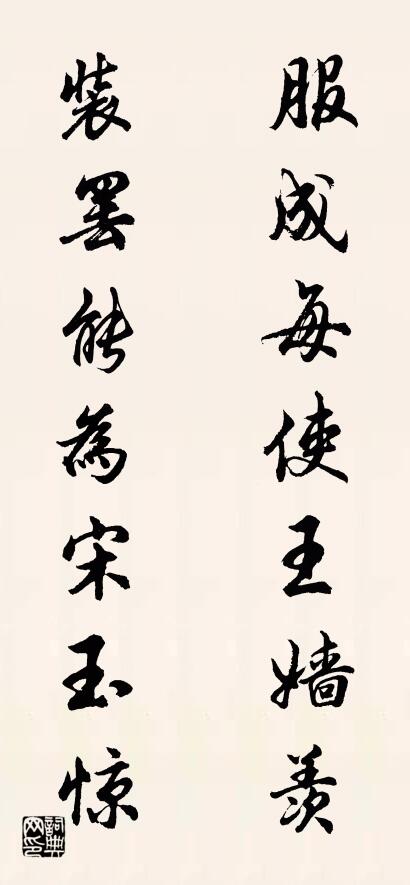 服成每使王嫱羡
装罢能为宋玉惊
词典网印